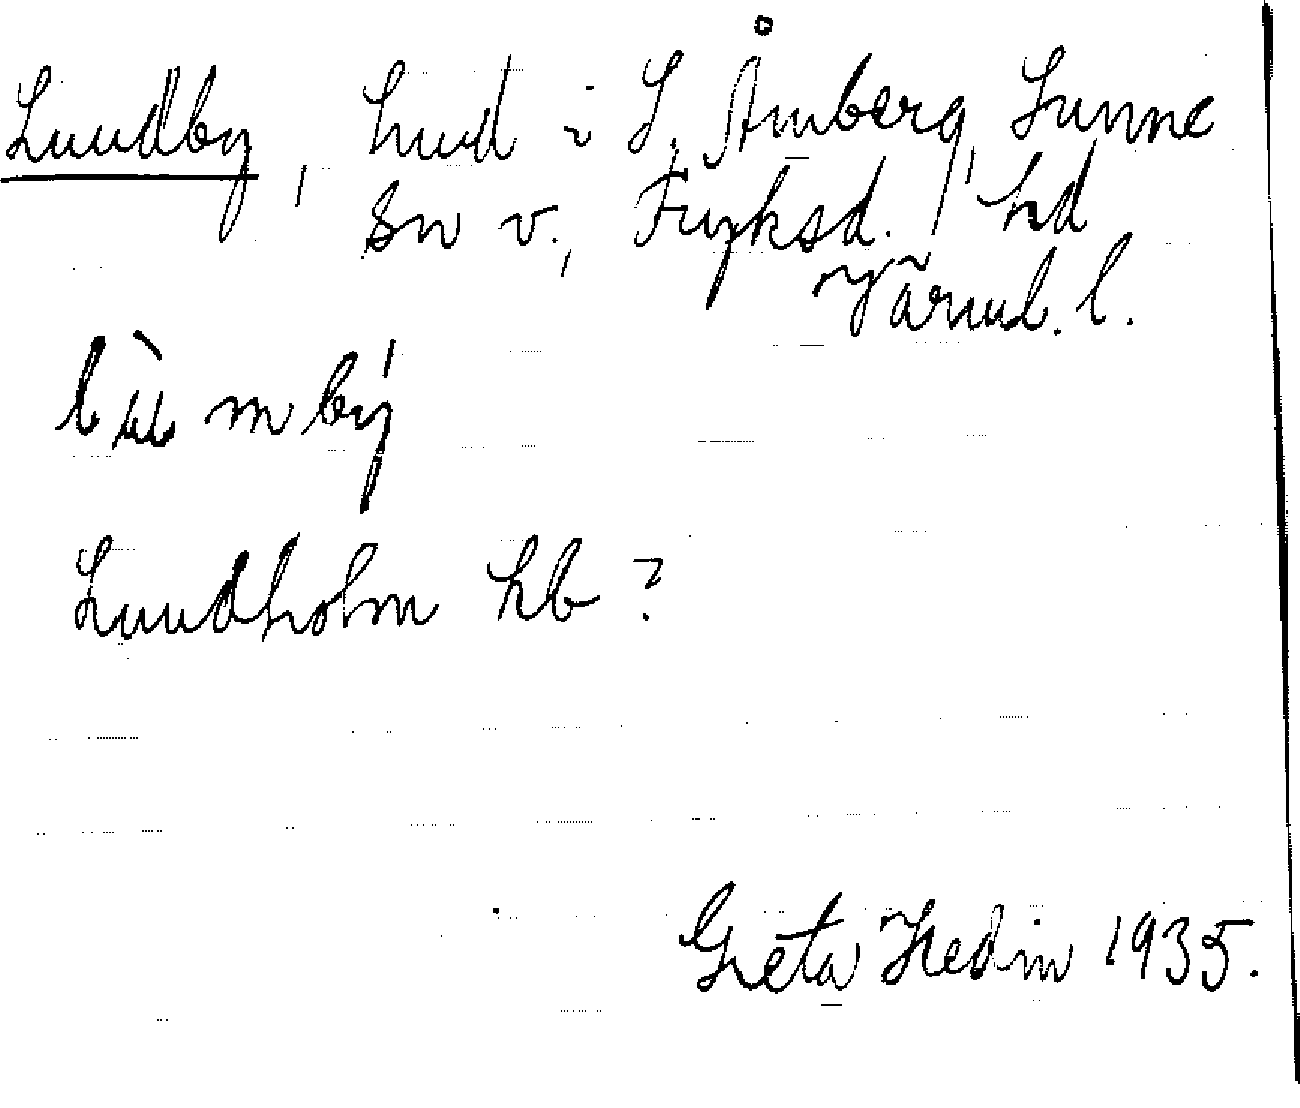 Lundby, hmd i S. Åmberg, Sunne
sn v., Fryksd. hd
Värml. l.
lu̇̀mbý
Lundholm hb ?
Greta Hedin 1935.